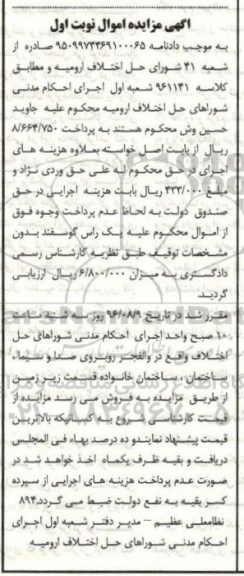 آگهی مزایده اموال نوبت اول
به موجب دادنامه ۹۵۰۹۹۷۴۴۶۹۱۰۰۰۶۵ صادره از
شعبه ۴۱ شورای حل اختلاف ارومیه و مطابق
کلاسه ۹۶۱۱۴۱ شعبه اول اجرای احکام مدنی
شوراهای حل اختلاف ارومیه محکوم علیه جاوید
حسین وش محکوم هستند به پرداخت ۸/۶۶۴/۷۵۰
ریال از بابت اصل خواسته بعلاوه هزینه های
اجرای در حق محکوم له علی حق وردی نژاد و
مبلغ ۴۳۳/۰۰۰ ریال بابت هزینه اجرایی در حق
صندوق دولت به لحاظ عدم پرداخت وجوه فوق
از اموال محکوم علیه یک راس گوسفند بدون
مشخصات توقیف طبق نظریه کارشناس رسمی
دادگستری به میزان ۶/۸۰۰/۰۰۰ ریال ارزیابی
گردید.
مقرر شد در تاریخ ۹۶/۰۸/۹ روز سه شنبه ساعت
۱۰ صبح واحد اجرای احکام مدنی شوراهای حل
اختلاف واقع در والفجر روبروی صدا و سیما ،
ساختمان خانواده قسمت زیر زمین
از طریق مزایده به فروش می رسد مزایده از
قیمت کارشناسی شروع به کسانیکه بالاترین
قیمت پیشنهاد نمایند ده درصد بهاء فی المجلس
دریافت و بقیه ظرف یکماه اخذ خواهد شد در
صورت عدم پرداخت هزینه های اجرایی از سپرده
کسر بقیه به نفع دولت ضبط می گردد.۸۹۴
نظامعلی عظیم – مدیر دفتر شعبه اول اجرای
احکام مدنی شوراهای حل اختلاف ارومیه